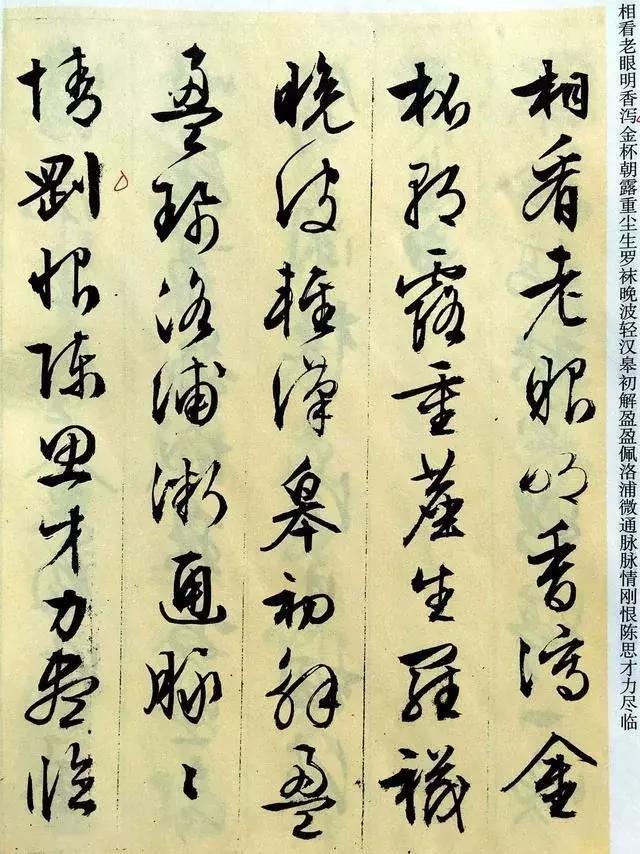 相看老眼明香泻金杯朝露重尘生罗袜晚波轻汉皋初解盈盈佩洛浦微通脉脉情刚恨陈思才力尽临
相看老眼明香瀉金
杯朝露重塵生羅襪
晚波輕漢皋初解盈
盈珮洛浦微通脉〻
情剛恨陳思才力盡臨